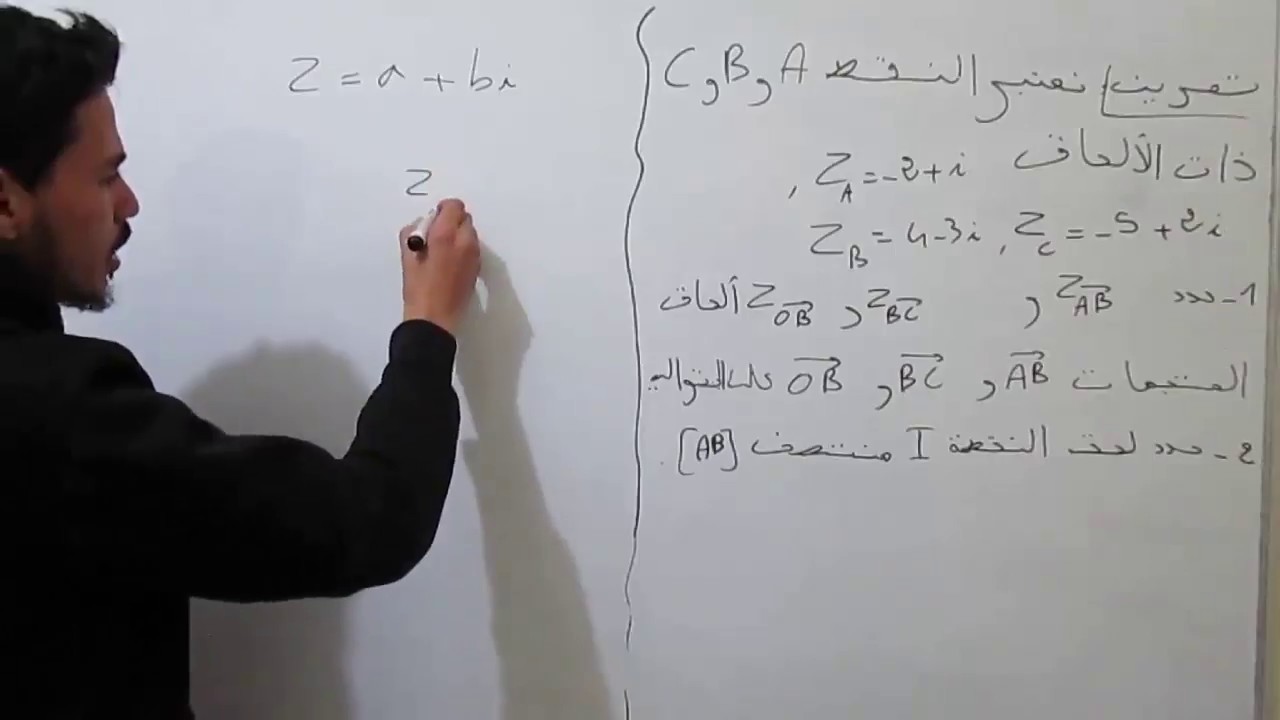 تمرين / نعتبر النقط A و B و C
ذات الألحاق Z_A = -2 + i ,
Z_B = 4 - 3i , Z_C = -5 + 2i
1 - حدد Z_{\overrightarrow{AB}} و Z_{\overrightarrow{BC}} و Z_{\overrightarrow{OB}} ألحاق
المتجهات \overrightarrow{AB} و \overrightarrow{BC} و \overrightarrow{OB} على التوالي
2 - حدد لحق النقطة I منتصف [AB].
Z = a + bi
Z